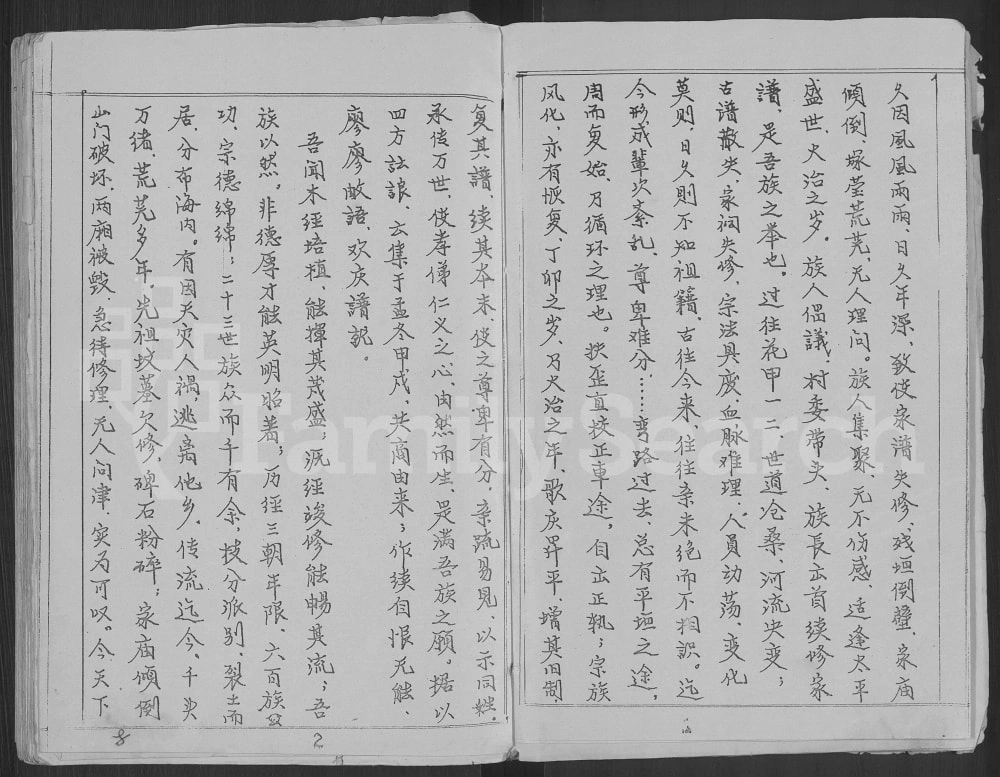 久因風風雨雨、日久年深、致使家谱失修、残垣倒壁、家庙
倾倒、塚莹荒芜、无人理问。族人集聚、无不伤感、适逢太平
盛世、大治之岁。族人倡議、村委带头、族長立首续修家
譜、是吾族之举也。过往花甲一二世道沧桑、河流央变；
古譜散失、家祠失修、宗法具废、血脉难理、人員动荡、变化
莫则、日久则不知祖籍、古往今来、往往亲未绝而不相認。迄
今形成輩次紊乱、尊卑难分……弯路过去、总有平垣之途，
周而复始、乃循环之理也。扶歪直按正車途，自立正軌；宗族
风化、亦有恢复、丁卯之岁、乃大治之年、歌庆昇平、增其旧制、
复其譜、续其本来、使之尊卑有分、亲疏易見、以示同姓、
承传万世、使孝俤仁义之心、由然而生、是满吾族之願。据以
四方訟諒、云集于孟冬甲戌、共商由来；作续自恨无能、
廖廖敝語、欢庆譜説。
吾聞木經培植、能揮其茂盛；流经竣修能暢其流；吾
族以然。非德厚才能英明昭著；历经三朝年限、六百族
功、宗德绵绵；二十三世族众而千有余；枝分派别、裂土而
居、分布海内。有因天灾人禍、逃离他乡、传流迄今、千头
万绪、荒芜多年、先祖坟墓欠修、碑石粉碎；家庙倾倒
山门破坏、两廂被毁、急待修理、无人问津、实为可叹。今天下
2
8
FamilySearch